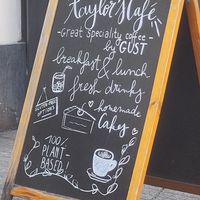 Taylor's Café
-Great Speciality coffee-
by GUST
breakfast & lunch
fresh drinks
homemade
Cakes
GLUTEN FREE
OPTIONS
100%
PLANT-
BASED